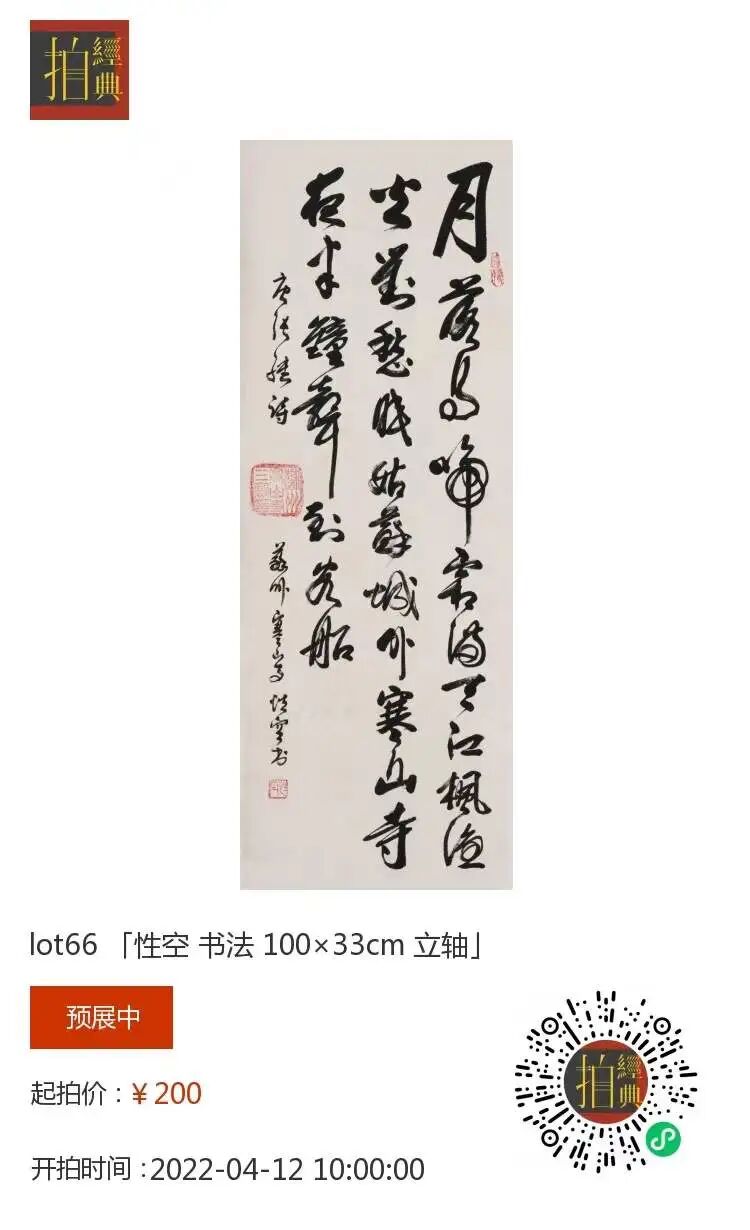 經典
拍
月落烏啼霜滿天江楓漁
火對愁眠姑蘇城外寒山寺
夜半鐘聲到客船
唐張繼詩
蘇州寒山寺性空书
lot66 「性空 书法 100×33cm 立轴」
预展中
起拍价：¥200
开拍时间:2022-04-12 10:00:00
經典
拍